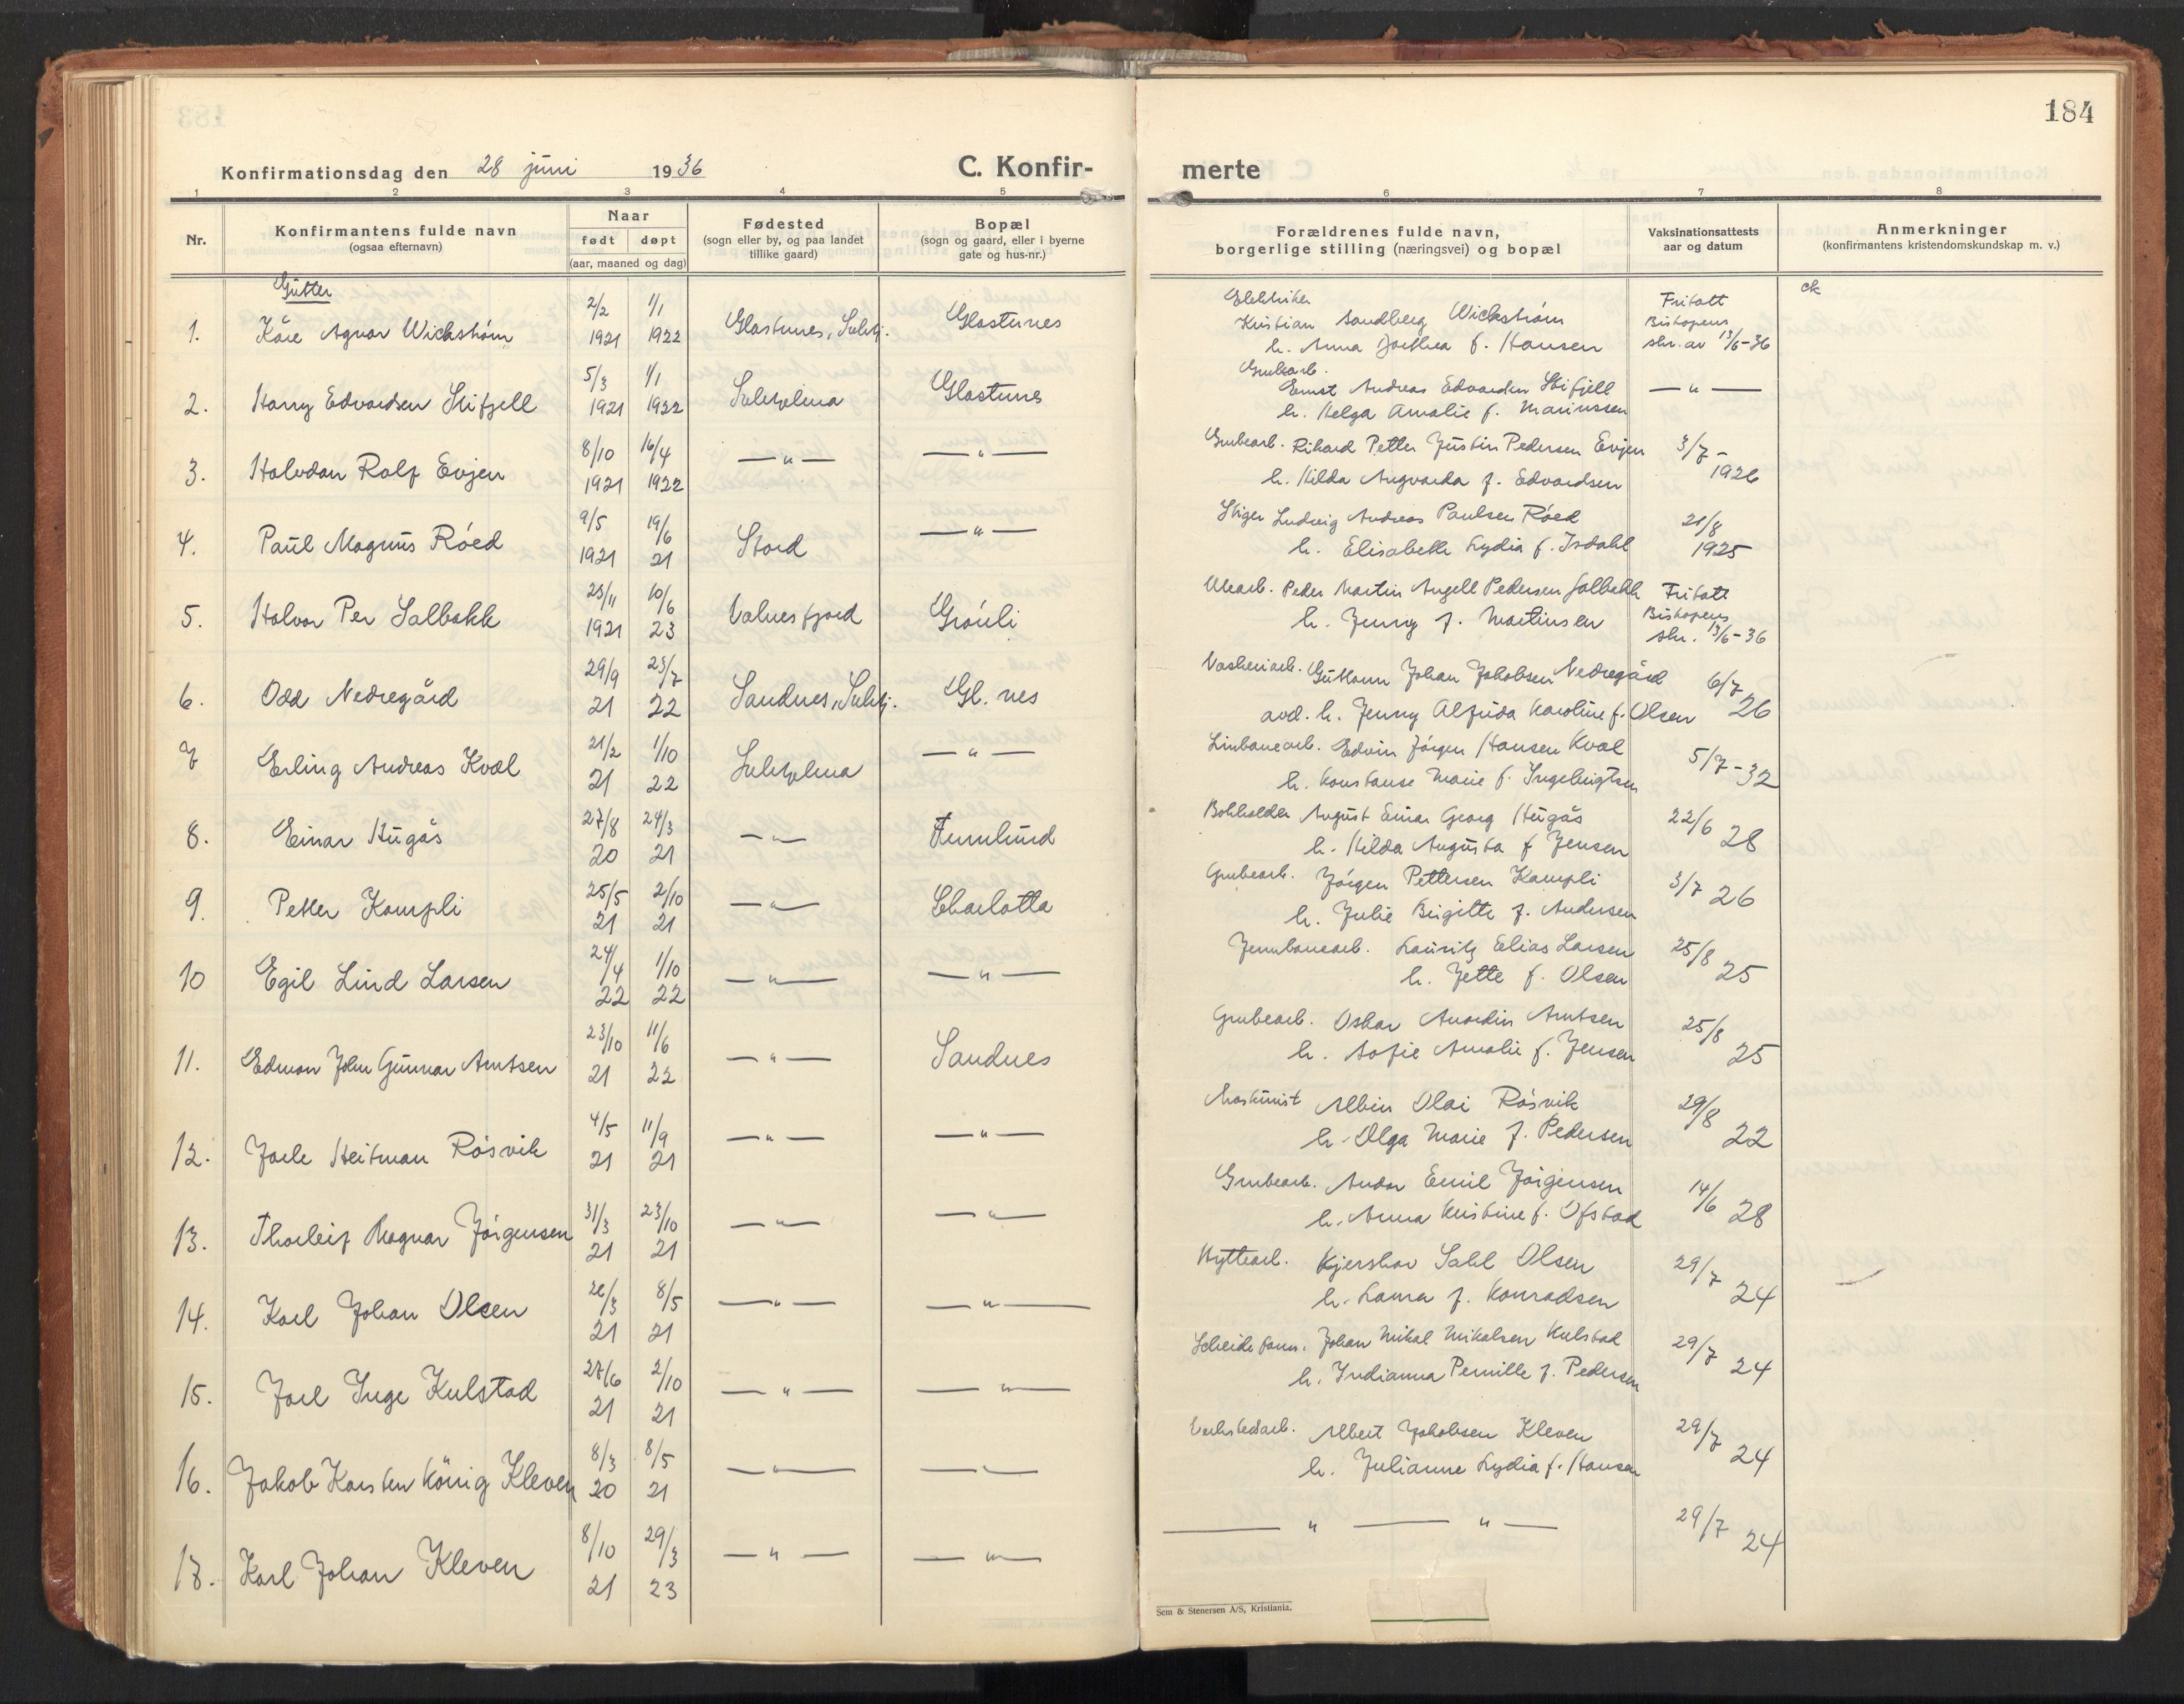 184
Konfirmationsdag den 28 juni 1936
C. Konfir-
merte
1 2 3 4 5 6 7 8
Nr.
Konfirmantens fulde navn
(ogsaa efternavn)
Naar
født døpt
(aar, maaned og dag)
Fødested
(sogn eller by, og paa landet
tillike gaard)
Bopæl
(sogn og gaard, eller i byerne
gate og hus-nr.)
Forældrenes fulde navn,
borgerlige stilling (næringsvei) og bopæl
Vaksinationsattests
aar og datum
Anmerkninger
(konfirmantens kristendomskundskap m. v.)
Gutter
1. Kåre Agnar Wickstrøm 2/2 1921 1/1 1922 Glastunes, Sulitj. Glastunes
Elektriker
Kristian Sandberg Wickstrøm
h. Anna Dorthea f. Hansen
Fritatt
Bispens
skr. av 13/6-36
2. Harry Edvardsen Stifjell 5/3 1921 1/1 1922 Sulitjelma Glastunes
Grubearb.
Ernst Andreas Edvardsen Stifjell
h. Helga Amalie f. Marinussen
— " —
3. Halvdan Rolf Evjen 8/10 1921 16/4 1922 — " — — " —
Grubearb. Rikard Petter Justin Pedersen Evjen
h. Hilda Angvarda f. Edvardsen
3/7 - 1926
4. Paul Magnus Røed 9/5 1921 19/6 21 Stord — " —
Stiger Ludvig Andreas Paulsen Røed
h. Elisabeth Lydia f. Isdahl
21/8 1925
5. Halvor Per Salbakk 23/11 1921 10/6 23 Valnesfjord Grønli
Utearb. Peder Martin Angell Pedersen Salbakk
h. Jenny f. Martinsen
Fritatt
Bispens
skr. 13/6-36
6. Odd Nedregård 29/9 21 23/7 22 Sandnes, Sulitj. Gl. nes
Vaskeriarb. Guttorm Johan Jakobsen Nedregård
avd. h. Jenny Alfrida Karoline f. Olsen
6/7 26
7 Erling Andreas Kvæl 21/2 21 1/10 22 Sulitjelma — " —
Linbanearb. Edvin Jørgen Hansen Kvæl
h. Konstanse Marie f. Ingebrigtsen
5/7-32
8. Einar Hugås 27/8 20 24/3 21 — " — Furulund
Bokholder August Einar Georg Hugås
h. Hilda Augusta f Jensen
22/6 28
9. Petter Kampli 25/5 21 2/10 21 — " — Charlotta
Grubearb. Jørgen Pettersen Kampli
h. Julie Birgitte f. Andersen
3/7 26
10 Egil Lind Larsen 24/4 22 1/10 22 — " — — " —
Jernbanearb. Lauritz Elias Larsen
h. Jette f. Olsen
25/8 25
11. Edmon John Gunnar Arntsen 23/10 21 11/6 22 — " — Sandnes
Grubearb. Oskar Anardin Arntsen
h. Sofie Amalie f. Jensen
25/8 25
12. Jarle Heitman Røsvik 4/5 21 11/9 21 — " — — " —
Maskinist Albin Olai Røsvik
h. Olga Marie f. Pedersen
29/8 22
13. Thorleif Magnar Jørgensen 31/3 21 23/10 21 — " — — " —
Grubearb. Andor Emil Jørgensen
h. Anna Kristine f. Ofstad
14/6 28
14. Karl Johan Olsen 26/3 21 8/5 21 — " — — " —
Hyttearb. Kjerskov Sahl Olsen
h. Laura f. Konradsen
29/7 24
15. Joel Inge Kulstad 27/6 21 2/10 21 — " — — " —
Scheideform. Johan Mikal Mikalsen Kulstad
h. Indianna Pernille f. Pedersen
29/7 24
16. Jakob Karsten König Kleven 8/3 20 8/5 21 — " — — " —
Verkstedarb. Albert Jakobsen Kleven
h. Julianne Lydia f. Hansen
29/7 24
17. Karl Johan Kleven 8/10 21 29/3 23 — " — — " —
— " — " —
29/7 24
Sem & Stenersen A/S, Kristiania.